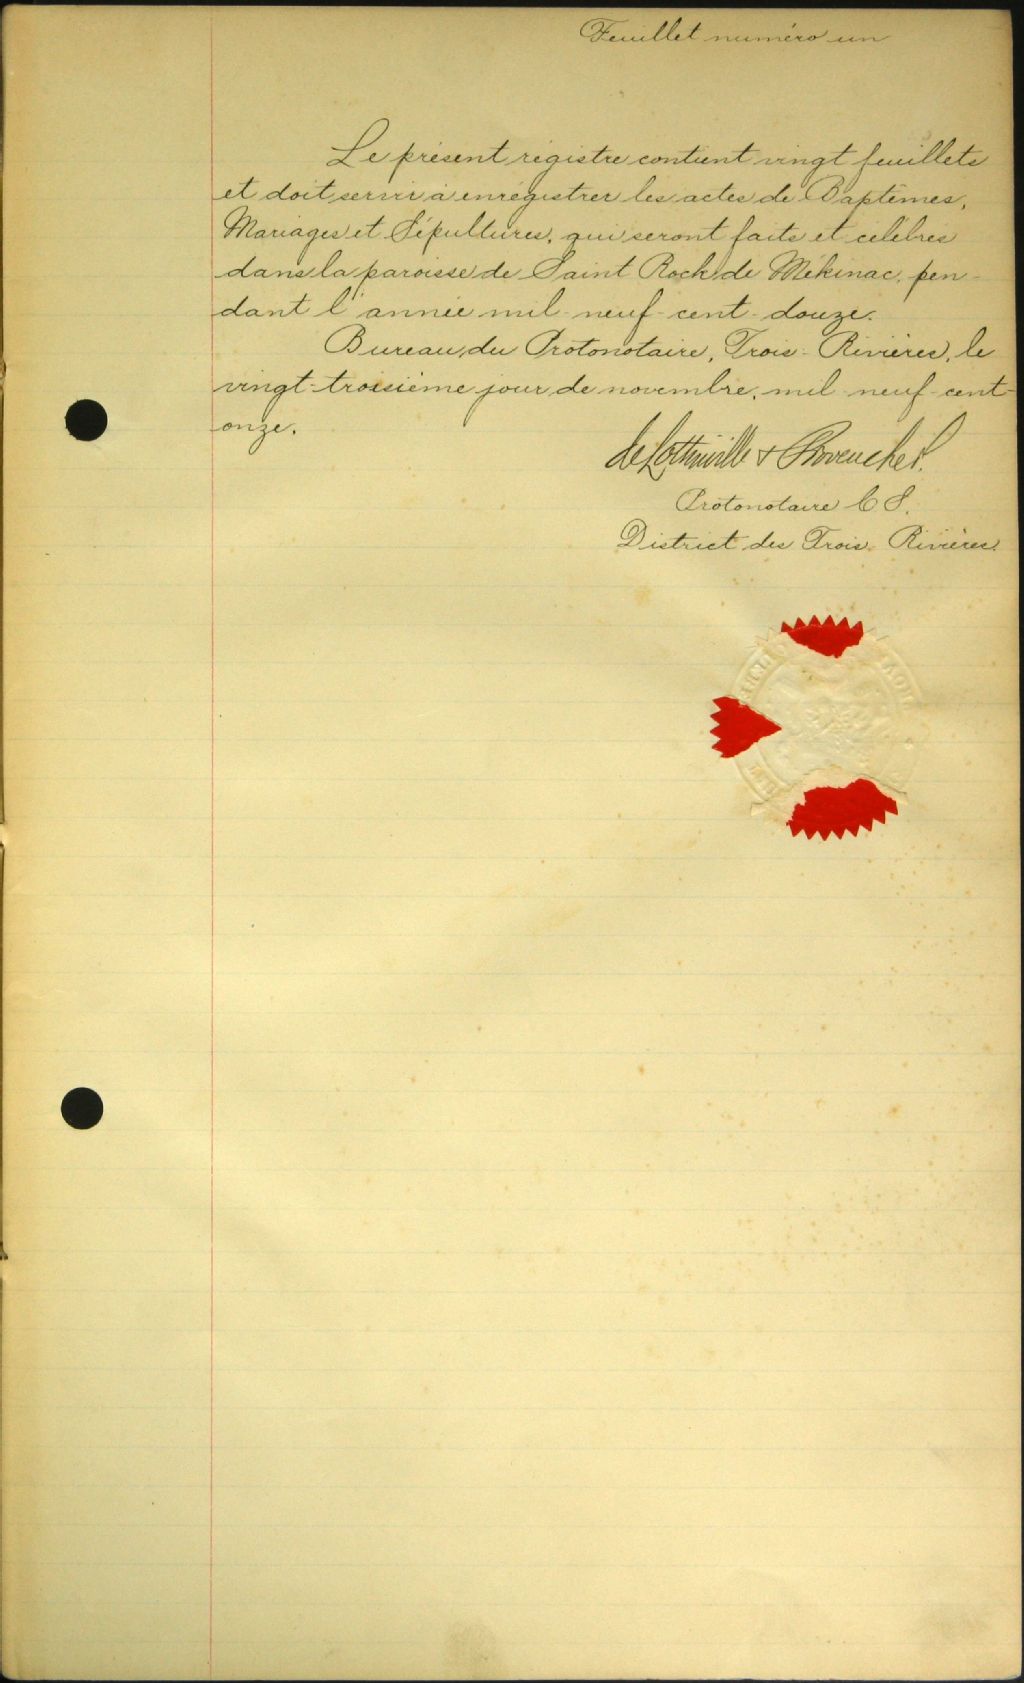 Feuillet numéro un
Le présent régistre contient vingt feuillets
et doit servir à enrégistrer les actes de Baptêmes,
Mariages et Sépultures, qui seront faits et célébres
dans la paroisse de Saint Roch de Mékinac, pen-
dant l'année mil-neuf-cent-douze.
Bureau du Protonotaire, Trois-Rivières, le
vingt-troisième jour de novembre, mil-neuf-cent-
onze.
deLottinville & Provencher.
Protonotaire C S.
District des Trois-Rivières.